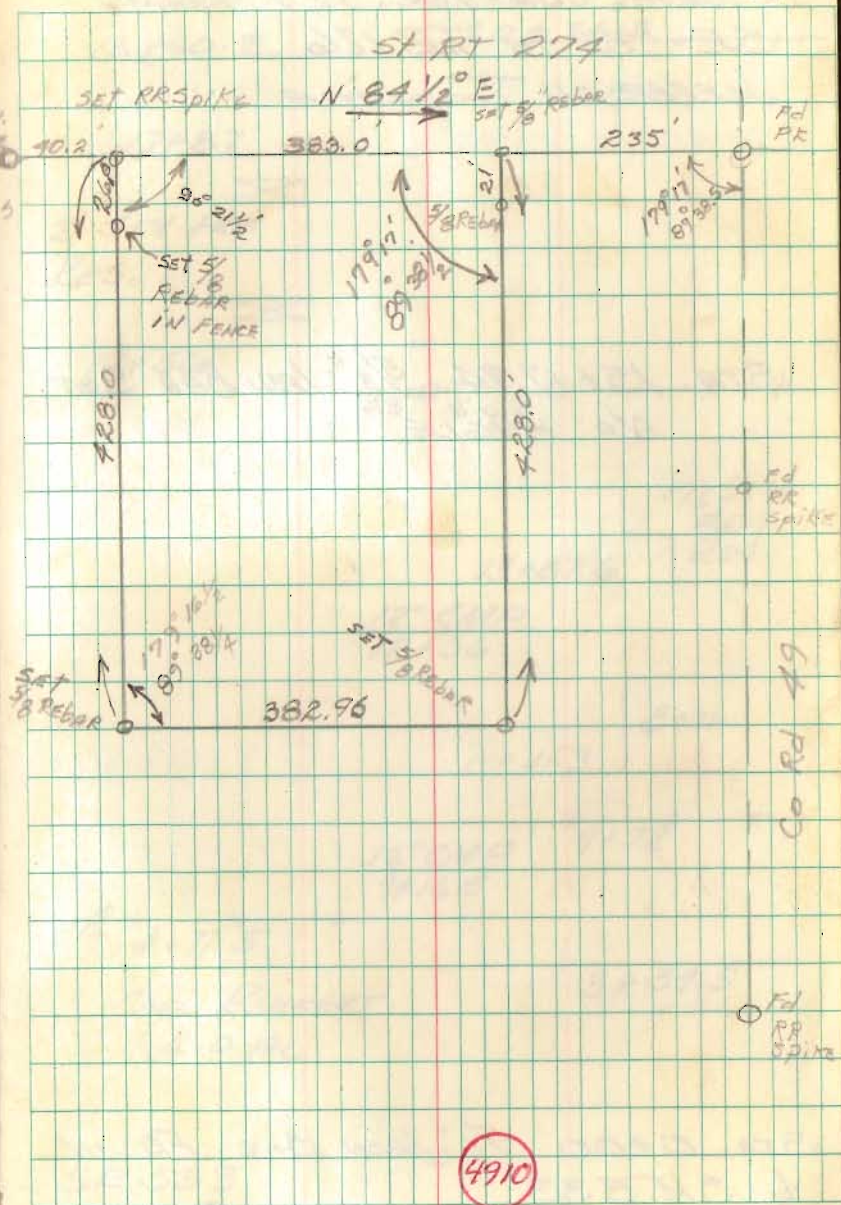 St RT 274
N 84 1/2° E
SET RR Spike
SET 5/8" REBAR
Fd
PK
40.2'
383.0'
235'
26.0
90° 21 1/2'
21'
5/8 REBAR
179° 17'
89° 38 1/2
179° 17'
89° 38.5'
SET 5/8
REBAR
IN FENCE
428.0
428.0'
Fd
RR
Spike
179° 16 1/2
89° 38 1/4
SET 5/8 REBAR
SET
5/8 REBAR
382.96
Co Rd 49
Fd
RR
Spike
4910